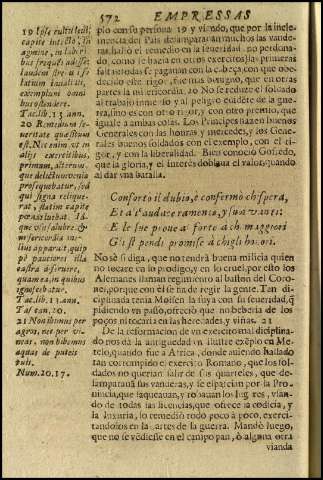 572 EMPRESSAS
19 Ipse cultu levi,
capite intecto, in
agmine, in labori-
bus frequens adesse;
laudem strenuis, so-
latium invalidis,
exemplum omni-
bus ostendere.
Tac. lib. 13. ann.
20 Remedium se-
veritate quæsitum
est. Nec enim ut in
alijs exercitibus,
primum, alterum-
que delictum venia
prosequebatur, sed
qui signa relique-
rat, statim capite
pœnas luebat. Id-
que usu salubre, &
misericordia me-
lius apparuit, quip-
pè pauciores illa
castra deseruere,
quam ea, in quibus
ignoscebatur.
Tac. lib. 13. ann.
Tas. can. 20.
21 Non ibimus per
agros, nec per vi-
neas, non bibemus
aquas de puteis
tuis.
Num. 20. 17.
plo con su persona 19 y viendo, que por la incle-
mencia del Pais desamparavan muchos las vande-
ras, halló el remedio en la severidad, no perdonan-
do, como se hazia en otros exercitos, las primeras
faltas; todas se pagavan con la cabeça, con que obe-
decido este rigor, fue mas benigno, que en otras
partes la misericordia. 20 No se reduce el soldado
al trabajo immenso y al peligro evidente de la gue-
rra, sino es con otro rigor, y con otro premio, que
iguale a ambas cosas. Los Principes hazen buenos
Generales con las honras y mercedes, y los Gene-
rales buenos soldados con el exemplo, con el ri-
gor, y con la liberalidad. Bien conoció Gofredo,
que la gloria, y el interés doblava el valor, quando
al dar una batalla
Conforto il dubio, è confermò chi spera,
Et a l'audace rammentò, i suoi vanti:
E le sue prove al forte: à chi maggiori
Gli stipendi promise à chi gli honori.
No sè si diga, que no tendrà buena milicia quien
no tocare en lo prodigo, y en lo cruel, por esso los
Alemanes llaman regimiento al baston del Coro-
nel, porque con el se ha de regir la gente. Tan di-
ciplinada tenia Moisen la suya con su severidad, q̃
pidiendo un passo, ofreció que no beberia de los
poços ni tocaria en las heredades, y viñas. 21
De la reformacion de un exercito mal diciplina-
do nos dà la antiguedad un ilustre exẽplo en Me-
telo, quando fue a Africa, donde aviendo hallado
tan corrompido el exercito Romano, que los sol-
dados no querian salir de sus quarteles, que de-
samparavan sus vanderas, y se esparcian por la Pro-
vincia, que saqueavan, y robavan los lugares, vsan-
do de todas las licencias, que ofrece la codicia, y
la luxuria, lo remedió todo poco à poco, exerci-
tandolos en las artes de la guerra. Mandó luego,
que no se vẽdiesse en el campo pan, ò alguna otra
vianda